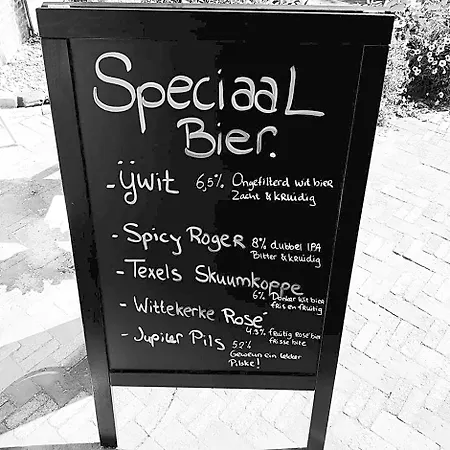 Speciaal
Bier.
- ÿwit 6,5% Ongefilterd wit bier
Zacht & kruidig
- Spicy Roger 8% dubbel IPA
Bitter & kruidig
- Texels Skuumkoppe
6% Donker wit bier
fris en fruitig
- Wittekerke Rosé
4.3% fruitig Rosé bier
frisse bite
- Jupiler Pils 5.2%
Gewoon een lekker
Pilske!